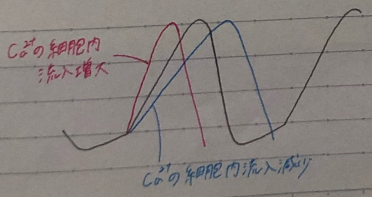 Ca²⁺の細胞内
流入増大
Ca²⁺の細胞内流入減少